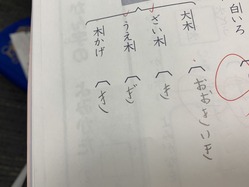 白いろ
大木
おおきいき
ざい木
き
うえ木
ぎ
木かげ
き